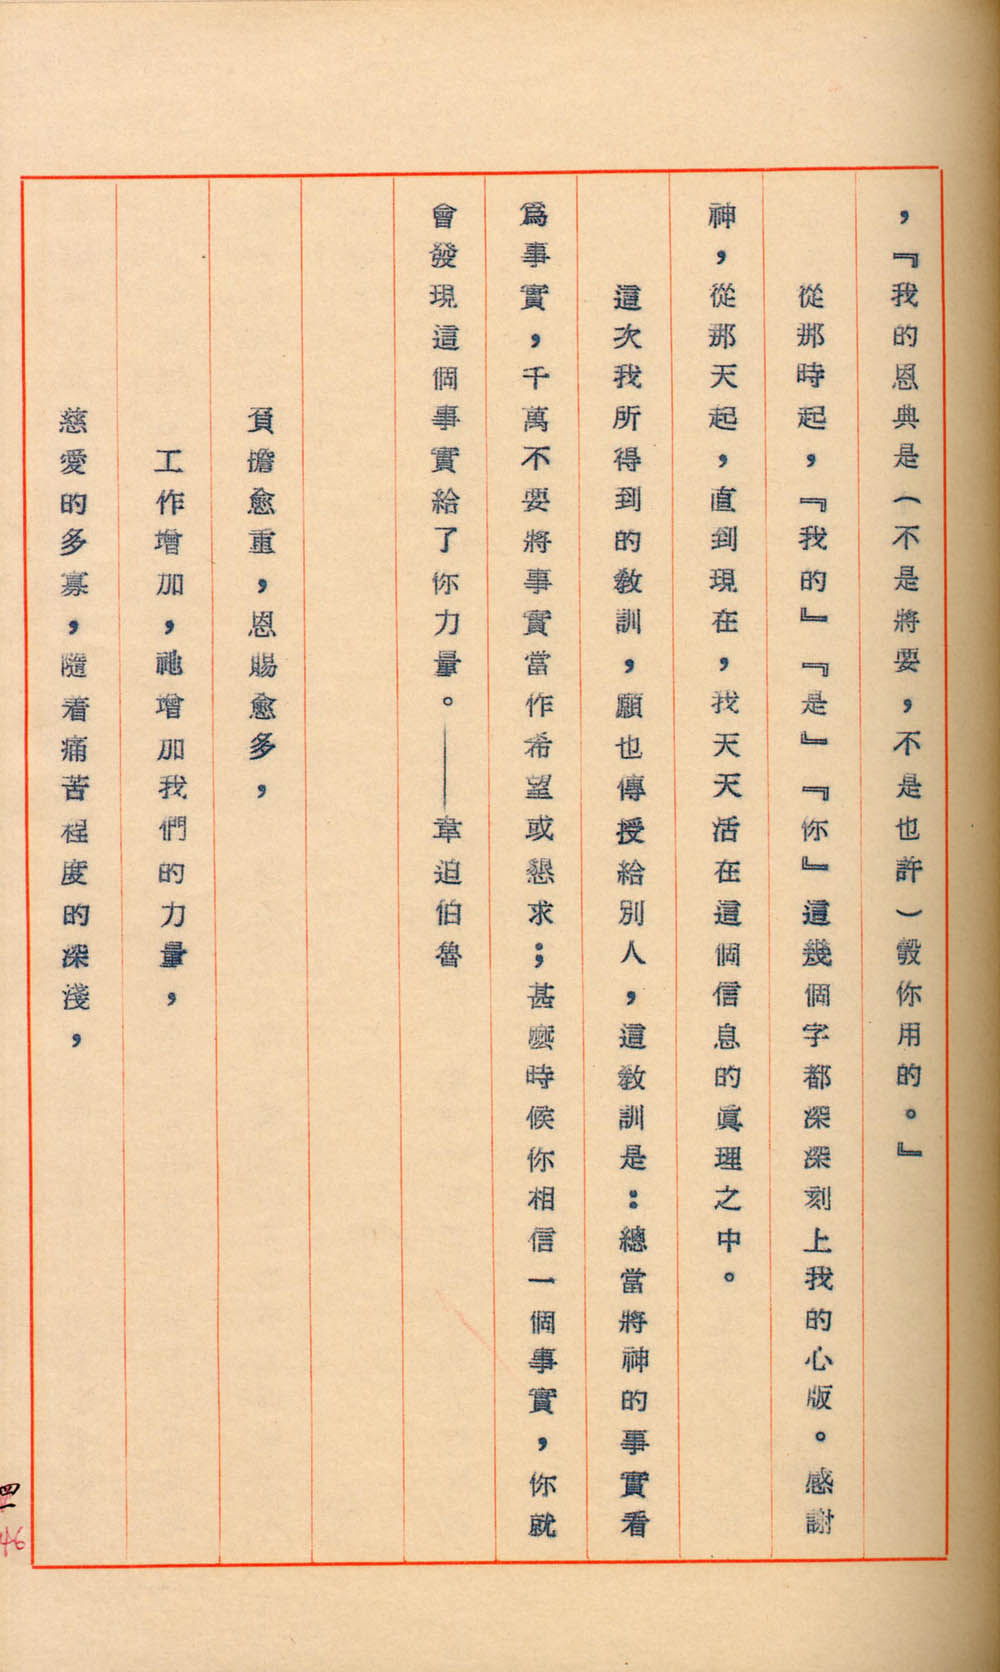 ，『我的恩典是（不是將要，不是也許）彀你用的。』
從那時起，『我的』『是』『你』這幾個字都深深刻上我的心版。感謝
神，從那天起，直到現在，找天天活在這個信息的眞理之中。
這次我所得到的敎訓，願也傳授給別人，這敎訓是：總當將神的事實看
爲事實，千萬不要將事實當作希望或懇求；甚麼時候你相信一個事實，你就
會發現這個事實給了你力量。——韋迫伯魯
負擔愈重，恩賜愈多，
工作增加，祂增加我們的力量，
慈愛的多寡，隨着痛苦程度的深淺，
46